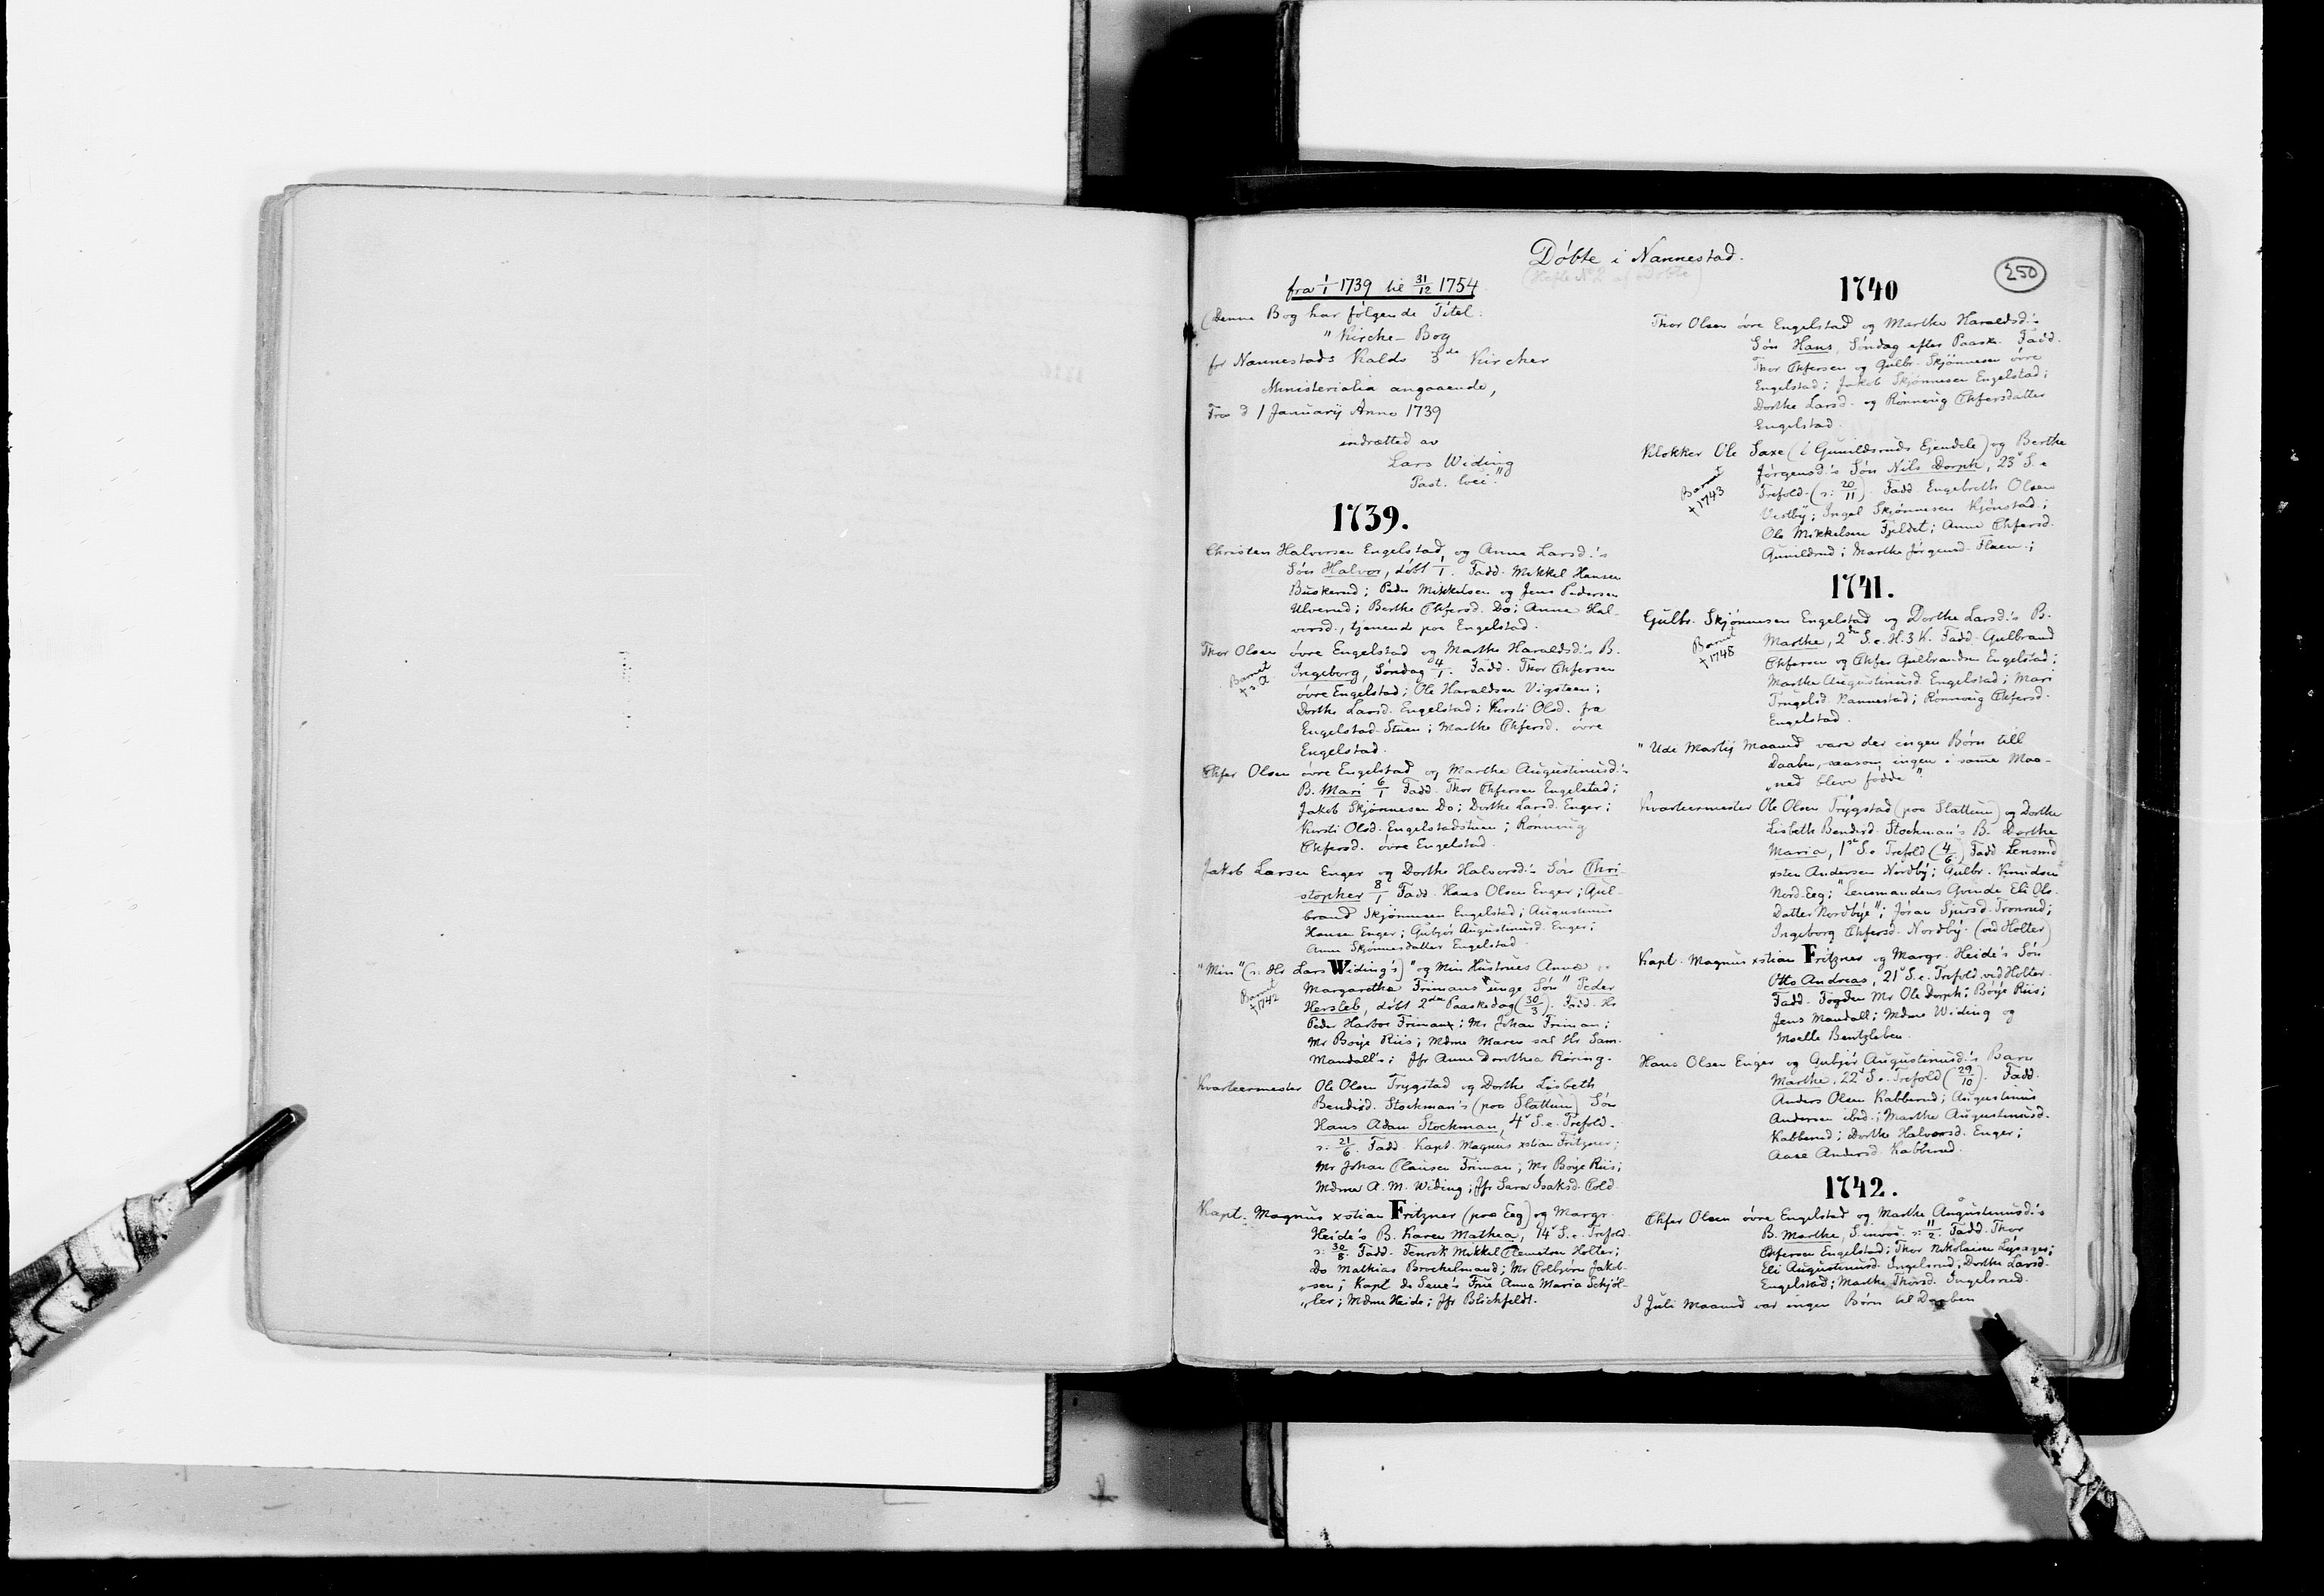 Døbte i Nannestad.
(Hefte No 2 af Døbte)
250
fra 1/1 1739 til 31/12 1754
(Denne Bog har følgende Titel:
"Kirche-Bog
for Nannestads Kalds 3de Kircher
Ministerialia angaaende,
Fra d 1 Januarij Anno 1739
indrætted av
Lars Widing
Past. loci."
1739.
Christen Halvorsen Engelstad og Anne Larsd.'s
Søn Halvor, døbt 1/1. Fadd. Mikkel Hansen
Buskerud; Peder Mikkelsen og Jens Pedersen
Ulverud; Berthe Chfersd. Do; Anne Hal-
vorsd., tjenende paa Engelstad.
Thor Olsen øvre Engelstad og Marthe Haraldsd.'s B.
Barnet
+ s. A.
Ingeborg, Søndag 4/1. Fadd. Thor Chfersen
øvre Engelstad; Ole Haraldsen Vigsteen;
Dorthe Larsd. Engelstad; Kirsti Olsd. fra
Engelstad-Stuen; Marthe Chfersd. øvre
Engelstad.
Chfer Olsen øvre Engelstad og Marthe Augustinusd.'s
B. Mari 6/1 Fadd. Thor Chfersen Engelstad;
Jakob Skjønnesen Do; Dorthe Larsd. Enger;
Kirsti Olsd. Engelstadstuen; Rønnaug
Chfersd. øvre Engelstad.
Jakob Larsen Enger og Dorthe Halvorsd.'s Søn Chri-
stopher 8/1 Fadd. Hans Olsen Enger; Gul-
brand Skjønnesen Engelstad; Augustinus
Hansen Enger; Gubjør Augustinusd. Enger;
Anne Skjønnesdatter Engelstad.
"Min" (ɔ: Hr Lars Widing's) "og Min Hustrues Anna
Barnet
+ 1742
Margaretha Frimans unge Søn" Peder
Hersleb, døbt 2den Paaskedag (30/3). Fadd. Hr
Peder Harboe Friman; Mr Johan Friman;
Mr Børje Riis; Mdme Maren sal Hr Sam.
Mandall's; Jfr Anne Dorothea Røring.
Kvarteermester Ole Olsen Trygstad og Dorthe Lisbeth
Bendixd. Stockman's (paa Slattum) Søn
Hans Adam Stockman, 4' S. e. Trefold.
ɔ: 21/6. Fadd. Kapt. Magnus xstian Fritzner;
Mr Johan Clausen Friman; Mr Børje Riis;
Mdme A. M. Widing; Jfr Sara Isaksd. Cold.
Kapt. Magnus xstian Fritzner (paa Eeg) og Margr.
Heide's B. Karen Mathea, 14' S. e. Trefold.
ɔ: 30/8. Fadd. Fenrik Mikkel Clemetsen Holter;
Do Mathias Brochelmand; Mr Colbjørn Jakob-
"sen; Kapt de Seue's Frue Anna Maria Schjøl-
"ler; Mdme Heide; Jfr Blichfeldt.
1740
Thor Olsen øvre Engelstad og Marthe Haraldsd.'s
Søn Hans, Søndag efter Paaske. Fadd.
Thor Chfersen og Gulbr. Skjønnesen øvre
Engelstad; Jakob Skjønnesen Engelstad;
Dorthe Larsd. og Rønnaug Chfersdatter
Engelstad.
Klokker Ole Saxe (i Gunildsruds Ejendele) og Berthe
Barnet
+ 1743
Jørgensd.'s Søn Nils Dorph, 23' S. e
Trefold. (ɔ: 20/11). Fadd. Engebreth Olsen
Vestby; Ingel Skjønnesen Kjønstad;
Ole Mikkelsen Fjeldet; Anne Chfersd.
Gunildrud; Marthe Jørgensd. Flaen.;
1741.
Gulbr. Skjønnesen Engelstad og Dorthe Larsd.'s B.
Barnet
+ 1748
Marthe, 2den S. e. H. 3 K. Fadd. Gulbrand
Chfersen og Chfer Gulbrandsen Engelstad;
Marthe Augustinusd. Engelstad; Mari
Trugelsd. Nannestad; Rønnaug Chfersd.
Engelstad.
"Udi Martij Maaned vare der ingen Børn till
Daaben, saasom ingen i same Maa-
"ned bleve fødde".
Kvarteermester Ole Olsen Trygstad (paa Slattum) og Dorthe
Lisbeth Bendixd. Stockman's B. Dorthe
Maria, 1ste S. e Trefold (4/6) Fadd. Lensmd
xsten Andersen Nordby; Gulbr. Knudsen
Nord-Eeg; "Lensmandens Qvinde Eli Ols-
Datter Nordbye"; Jøran Sjursd. Tronrud;
Ingeborg Chfersd. Nordby. (ved Holter)
Kapt. Magnus xstian Fritzner og Margr. Heide's Søn
Otto Andreas, 21' S. e. Trefold. ved Holter.
Fadd. Fogden Mr Ole Dorph; Børje Riis;
Jens Mandall; Mdme Widing og
Moelle Bentzleben.
Hans Olsen Enger og Gubjør Augustinusd.'s Barn
Marthe, 22' S. e. Trefold (29/10). Fadd.
Anders Olsen Kabberud; Augustinus
Andersen ibid.; Marthe Augustinusd.
Kabberud; Dorthe Halvorsd. Enger;
Aase Andersd. Kabberud.
1742.
Chfer Olsen øvre Engelstad og Marthe Augustinusd.'s
B. Marthe, S. invoc. ɔ: 11/2. Fadd. Thor
Chfersen Engelstad; Thor Nikolaisen
Eli Augustinusd. Engelsrud; Dorthe Larsd.
Engelstad; Marthe Thorsd. Ingelsrud.
I Juli Maaned var ingen Børn til Daaben